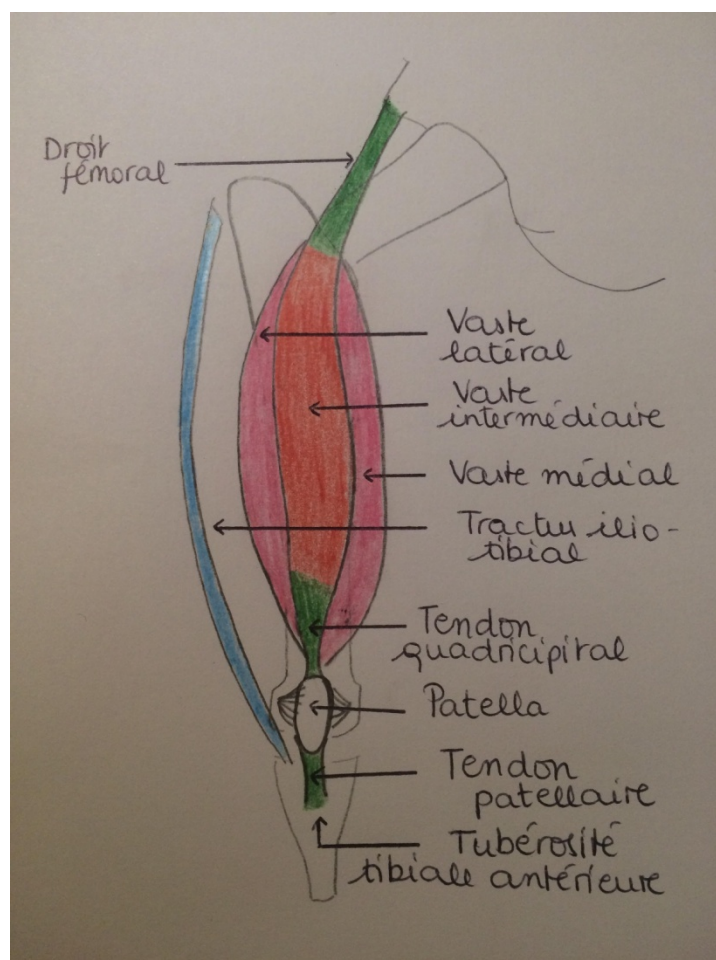 Droit
fémoral
Vaste
latéral
Vaste
intermédiaire
Vaste médial
Tractus ilio-
tibial
Tendon
quadricipital
Patella
Tendon
patellaire
Tubérosité
tibiale antérieure